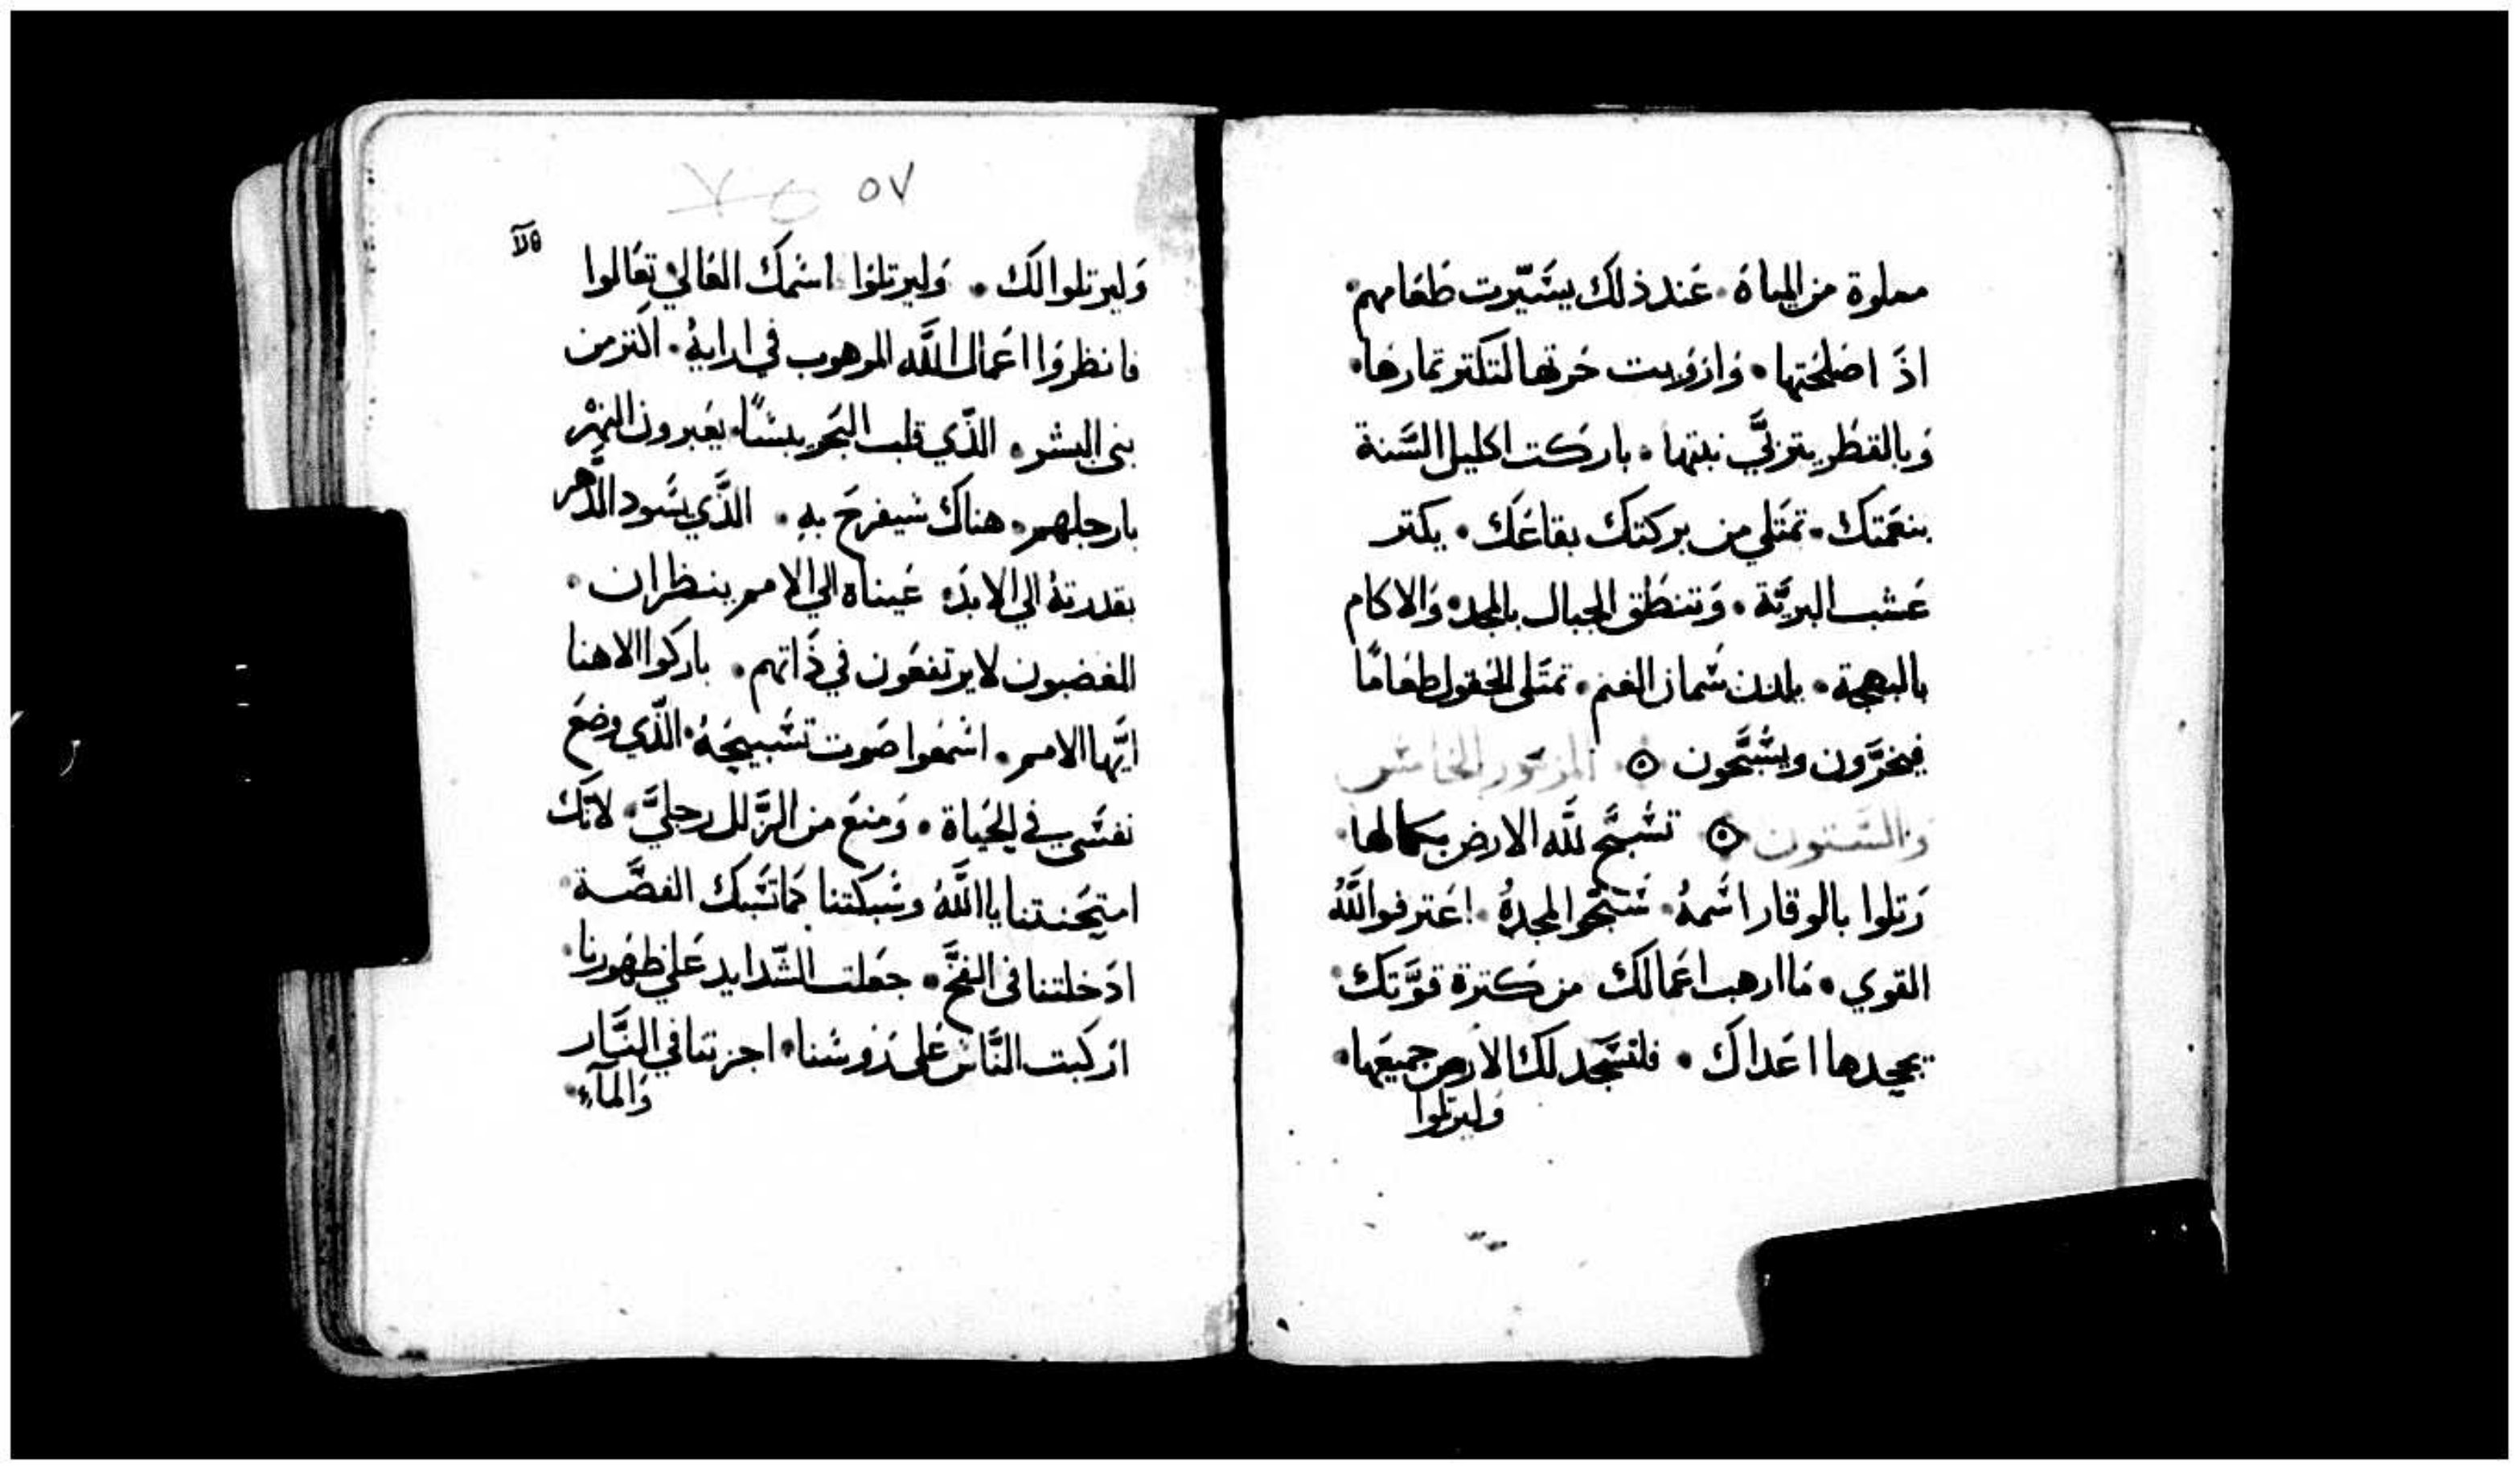 مملوة من المياة. عَند ذلك يسَّيّرت طعَامهم.
اذَ اصلحَتها. وَارَوَيت حَرتها لتكتر تمارهَا.
وَبالقطر يتزكيّ نبتها. باركت اكليل السَّنة
بنعَمتك. تمتَلي من بركتك بقاعَك. يكتر
عَشب البريَّة. وَتنطَق الجبال بالمجد. وَالاكام
بالبهجة. يلدن سَّمان الغنم. تمتَلى الحَقول طعَامًا
فيصَرَّون ويسَّبَّحون ۞ المزمَور الخَامسَ
وَالسَّتون ۞ تسَّبَّح للَّه الارض بكمالها.
رَتلوا بالوقار اسَّمهُ. سَّبَّحَوا لمجدهُ. اعَترفوا للَّهُ
القوي. مَا ارهب اعَمالك من كترة قوَّتك.
يجحدها اعَداك. فلتسَّجد لك الارض جميعَها.
وَليرتلوا
٥٧
وَليرتلوا لَك. وَليرتلوَا اسَّمَك العَالي. تعَالوا
فانظروَا اعَمال اللَّه المرهوب في ارايهُ. اكتر من
بني البشر. الذَّي قلب البَحَر يبسًّا. يعَبرون النهْر
بارجلهم. هناك سَّيفرحَ به. الذَّي يسَّود الدَّهر
بقدرتهُ الي الابدَ. عَيناه الي الامم ينظران.
المغضبون لا يرتفعَون في ذَاتهم. باركوا الاهنا
ايَّها الامم. اسَّمعَوا صَوت تسَّبيحَهُ. الذَّي وضعَ
نفسَّي في الحَياة. وَمنعَ من الزَّلل رجليَّ. لانَّك
امتحَنتنا يا اللَّهُ وسَّبكتنا كمَا تسَّبك الفضَّة.
ادَخلتنا في الفخَّ. جعَلت الشَّدايد عَلي ظهَورنا.
ارَكبت النَّاسَّ عَلى رَوسَّنا. اجزتنا في النَّار
وَالمآء.